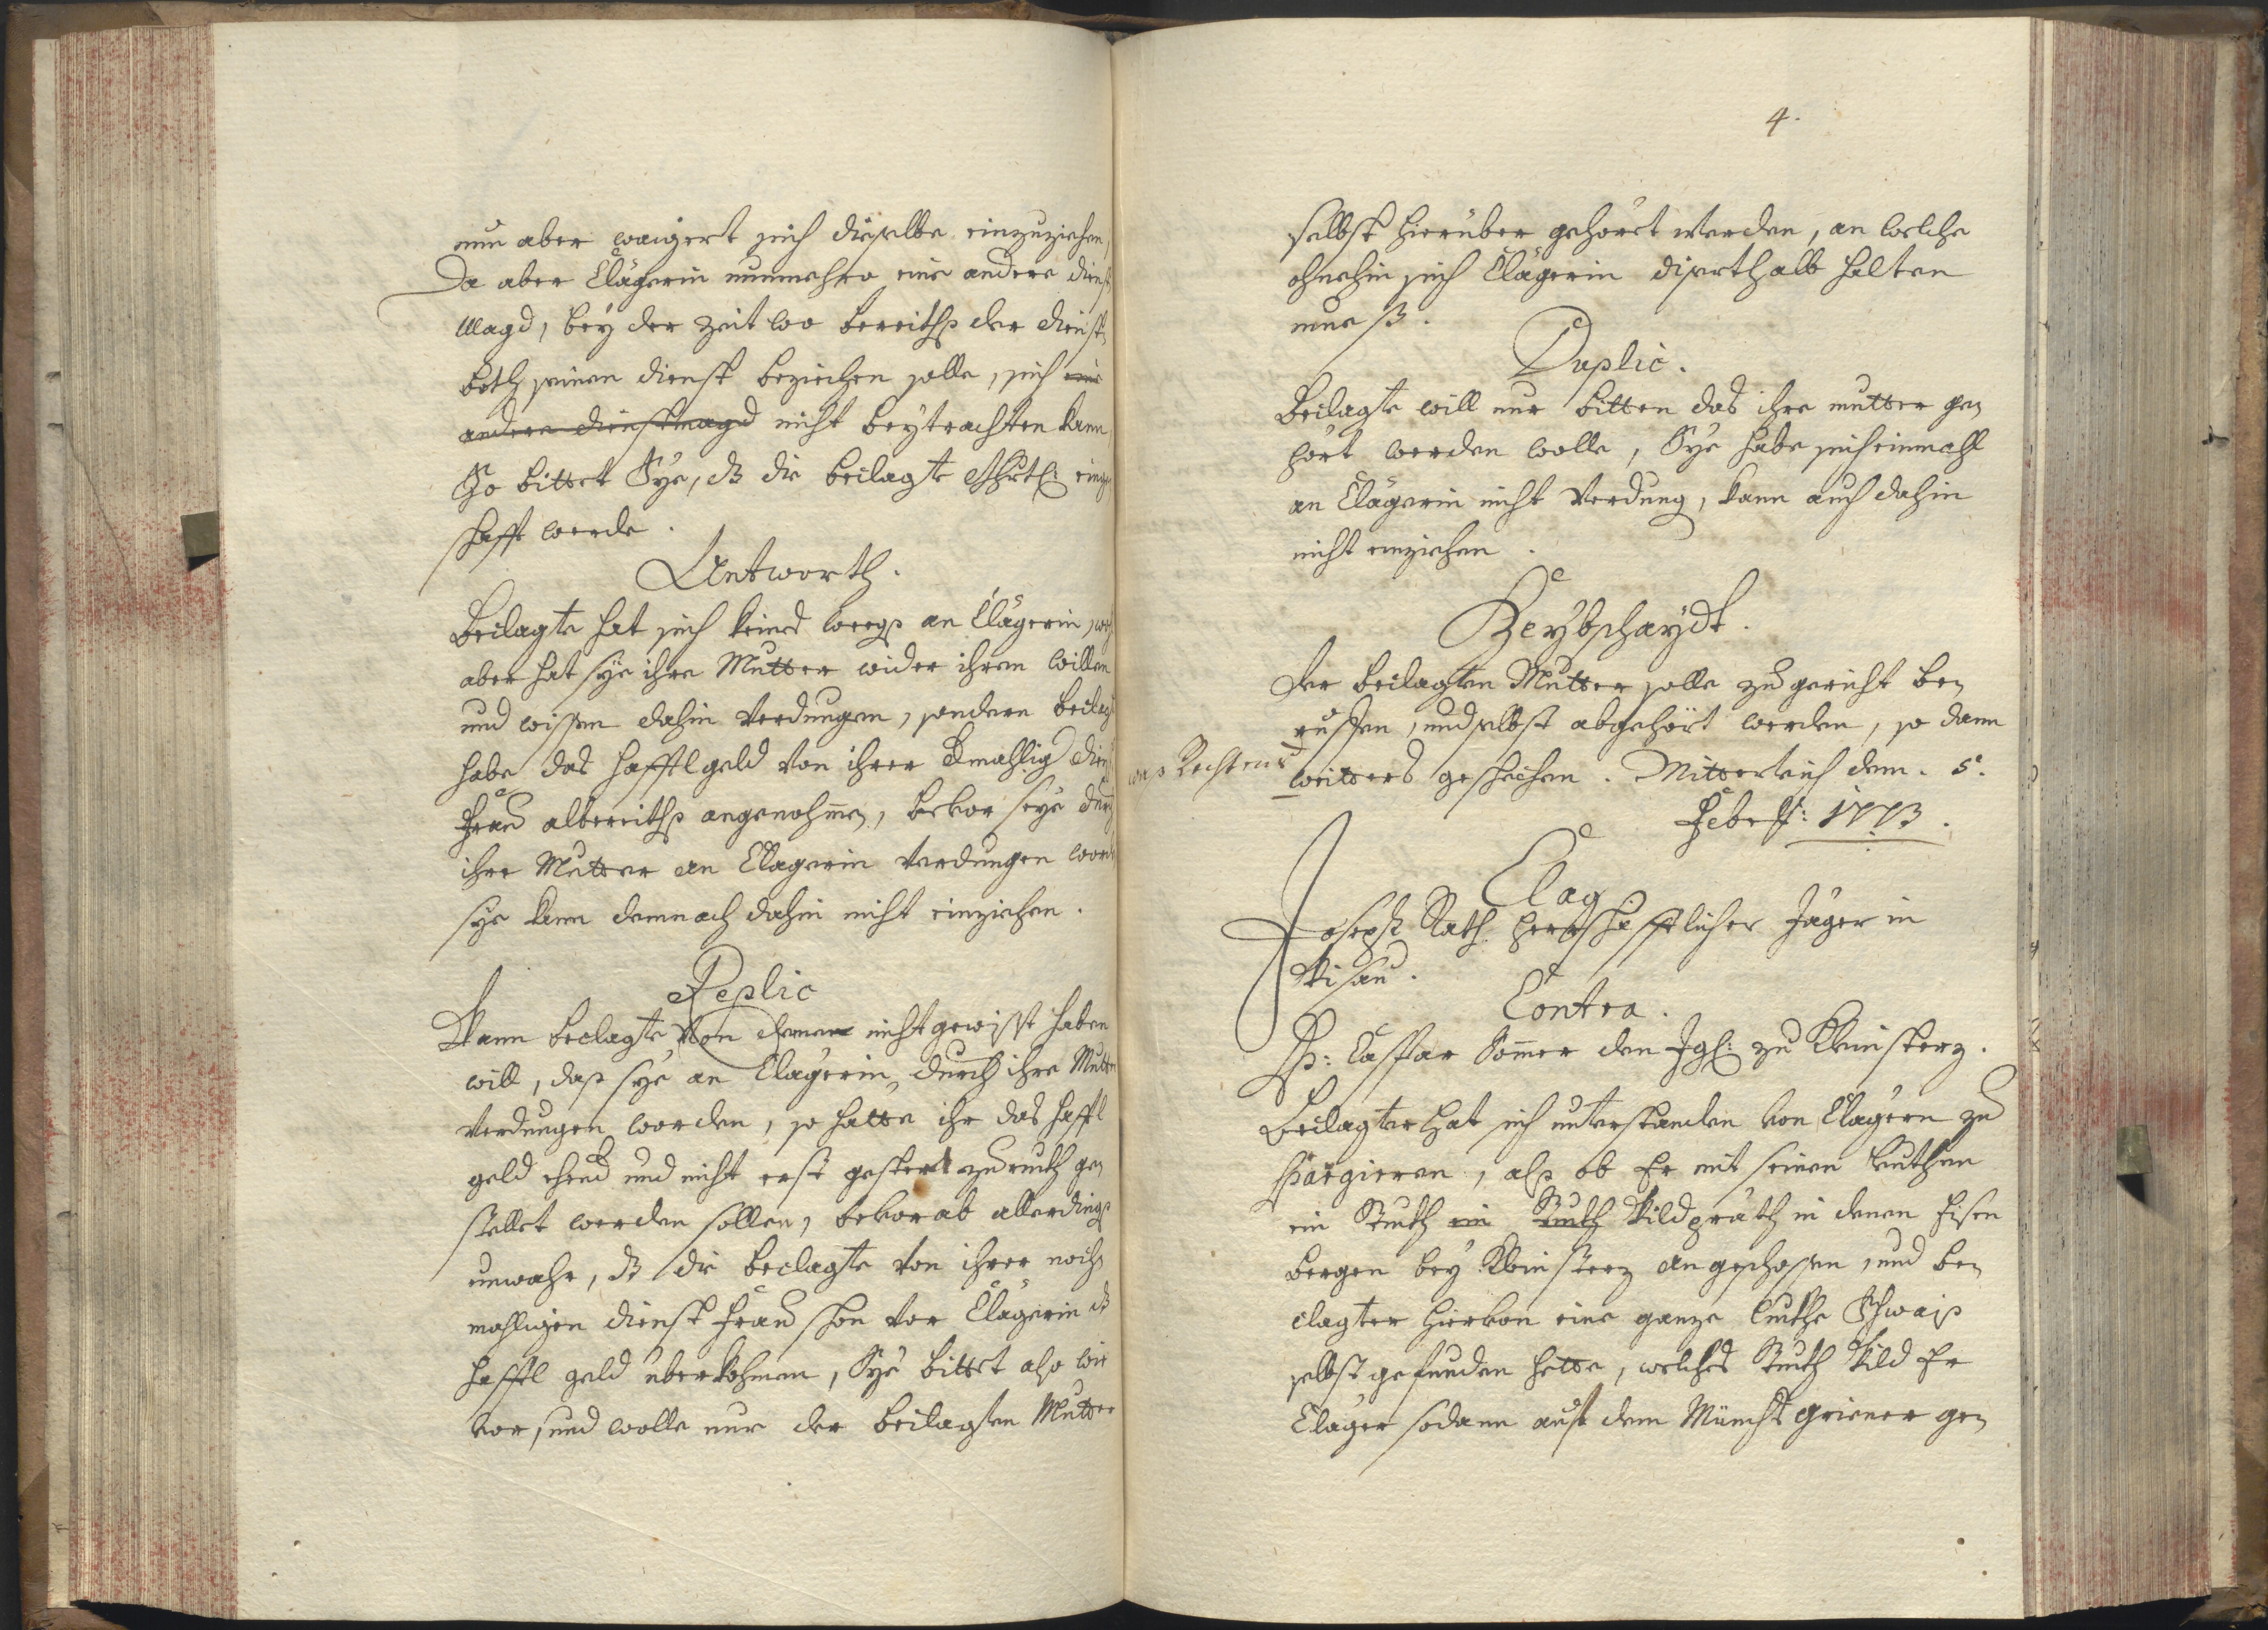 nun aber waigert sich dieselbe einzuziehen,
Da aber Clägerin nunmehro eine andere dienst
Magd, bey der Zeit wo bereiths der dienst
both seinen dienst beziehen solle, sich eine
andere dienstmagd nicht beytrachten kann,
So bittet Sye, dß die beclagte einge
schafft werde.
Antworth.
Beclagte hat sich keines weegs an Clägerin, wohl
aber hat sye ihre Mutter wider ihren willen
und wissen dahin verdungen, sondern beclagte
habe das hafftlgeld von ihrer dmahlig dienst
frau albereiths angenohmen, bevor seye durch
ihre Mutter an Clägerin verdungen worden
sye kann demnach dahin nicht einziehen.
Replic
Wann beclagte von deme nicht gewisst haben
will, dass sye an Clägerin durch ihre Mutter
verdungen worden, so hatte ihr das hafftl
geld ehend und nicht erst gestert zuruckh ge
stellet werden sollen, bevorab allerdings
unwahr, dß die beclagte von ihrer noch
mahligen dienst frau schon vor Clägerin dß
hafftl geld überkohmen, Sye bittet also wie
vor, und wolle nur der beclagten Mutter
4.
selbst hierüber gehöret werden, an welche
ohnehin sich Clägerin disorthalb halten
mueß.
Duplic.
Beclagte will nur bitten das ihre mutter ge
hört werden wolle, Sye habe sich einmahl
an Clägerin nicht verdung, kann auch dahin
nicht einziehen.
Beybschaydt.
Der beclagten Mutter solle zu gericht be
ruffen, und selbst abgehört werden, so dann
was Rechtens
weitters geschechen. Mitterteich den. 5.
Feber: 1773.
Clag
Joseph Rath herrschafftlicher Jäger in
Wisau.
Contra.
H: Caspar Sommer den Jgh: zu Kleinsterz.
Beclagter hat sich unterstanden von Clägern zu
spargieren, als ob Er mit seinen Leuthen
ein Stuckh ein Stuckh Wildpräth in denen Eisen
bergen bey Kleinsterz angeschossen, und be
clagter hievon eine ganze Schwaiß
selbst gefunden hette, welches Stuckh Wild Er
Cläger sodann auß dem griener ge